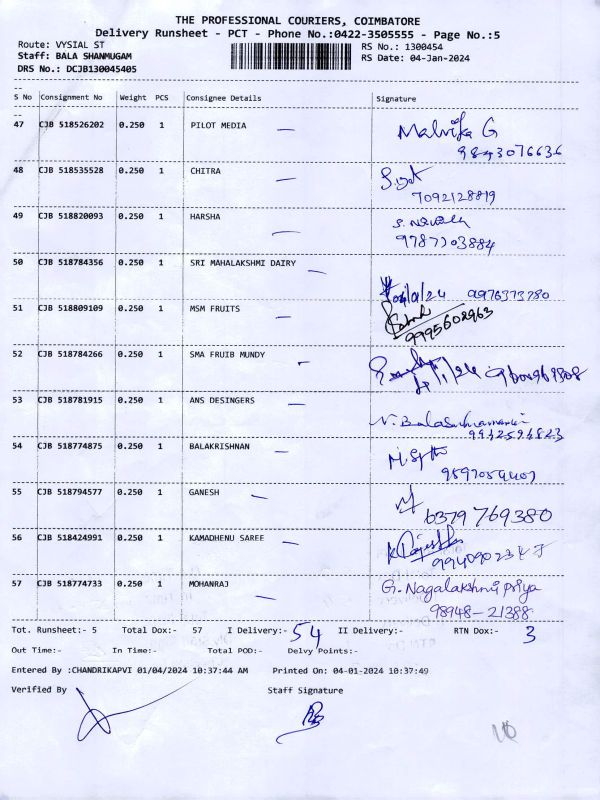 THE PROFESSIONAL COURIERS, COIMBATORE
Delivery Runsheet - PCT - Phone No.:0422-3505555 - Page No.:5
Route: VYSIAL ST RS No.: 1300454
Staff: BALA SHANMUGAM RS Date: 04-Jan-2024
DRS No.: DCJB130045405
S No Consignment No Weight PCS Consignee Details Signature
47 CJB 518526202 0.250 1 PILOT MEDIA Malvika G
9843076636
48 CJB 518535528 0.250 1 CHITRA
7092128819
49 CJB 518820093 0.250 1 HARSHA
9787703884
50 CJB 518784356 0.250 1 SRI MAHALAKSHMI DAIRY
9976373780
51 CJB 518809109 0.250 1 MSM FRUITS
9995602963
52 CJB 518784266 0.250 1 SMA FRUIB MUNDY
53 CJB 518781915 0.250 1 ANS DESINGERS
N. Balasubramani
54 CJB 518774875 0.250 1 BALAKRISHNAN
55 CJB 518794577 0.250 1 GANESH
6379769380
56 CJB 518424991 0.250 1 KAMADHENU SAREE
57 CJB 518774733 0.250 1 MOHANRAJ G. Nagalakshmi Priya
98948-21388
Tot. Runsheet:- 5 Total Dox:- 57 I Delivery:- 54 II Delivery:- RTN Dox:- 3
Out Time:- In Time:- Total POD:- Delvy Points:-
Entered By :CHANDRIKAPVI 01/04/2024 10:37:44 AM Printed On: 04-01-2024 10:37:49
Verified By Staff Signature